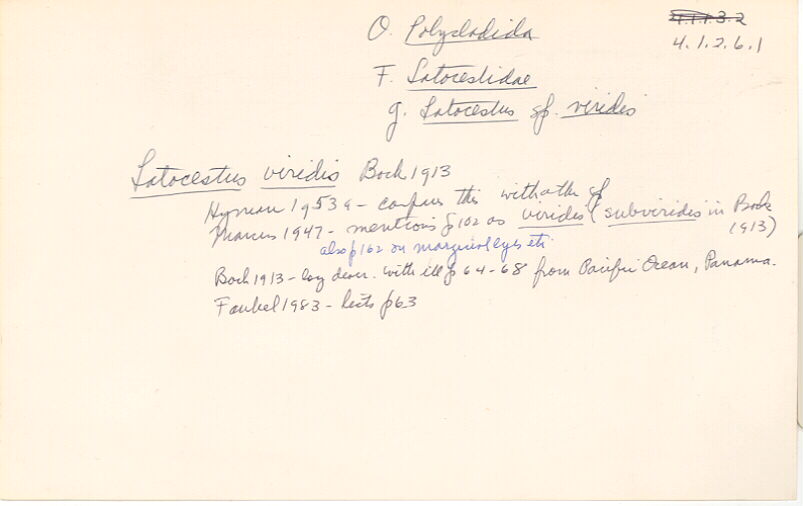 O. Polycladida
4.1.1.3.2
4.1.2.6.1
F. Latocestidae
g. Latocestus sp. viridis
Latocestus viridis Bock 1913
Hyman 1953a - compares this with other sp
Marcus 1947 - mentions p102 as viridis (subviridis in Bock 1913)
also p 162 on marginal eyes etc
Bock 1913 - long descr. with ill p 64-68 from Pacific Ocean, Panama.
Faubel 1983 - lists p63